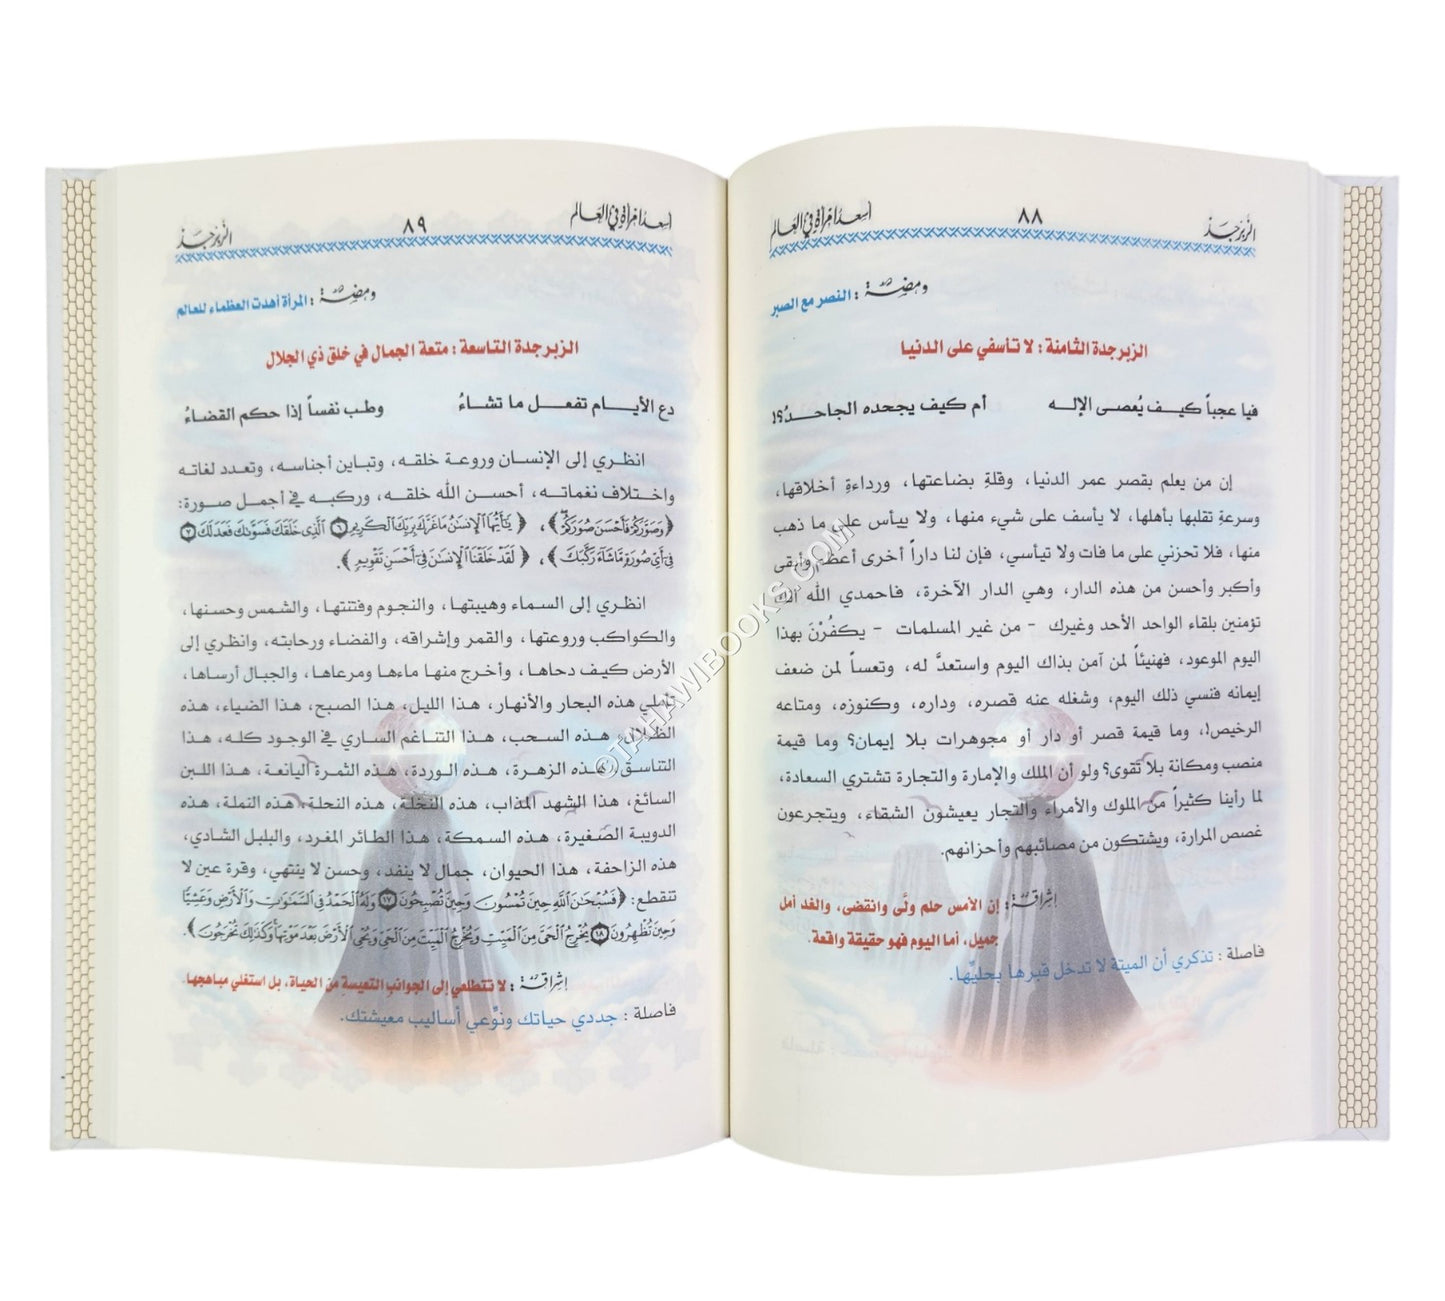 الزبرجد
٨٨
أسعد امرأة في العالم
ومضة : النصر مع الصبر
الزبرجدة الثامنة : لا تأسفي على الدنيا
فيا عجباً كيف يُعصى الإله أم كيف يجحده الجاحدُ؟!
إن من يعلم بقصر عمر الدنيا، وقلةِ بضاعتها، ورداءةِ أخلاقها،
وسرعةِ تقلبها بأهلها، لا يأسف على شيء منها، ولا ييأس على ما ذهب
منها، فلا تحزني على ما فات ولا تيأسي، فإن لنا داراً أخرى أعظم وأبقى
وأكبر وأحسن من هذه الدار، وهي الدار الآخرة، فاحمدي الله أنك
تؤمنين بلقاء الواحد الأحد وغيرك - من غير المسلمات - يكفُرْنَ بهذا
اليوم الموعود، فهنيئاً لمن آمن بذاك اليوم واستعدَّ له، وتعساً لمن ضعف
إيمانه فنسي ذلك اليوم، وشغله عنه قصره، وداره، وكنوزه، ومتاعه
الرخيص!، وما قيمة قصر أو دار أو مجوهرات بلا إيمان؟ وما قيمة
منصب ومكانة بلا تقوى؟ ولو أن الملك والإمارة والتجارة تشتري السعادة،
لما رأينا كثيراً من الملوك والأمراء والتجار يعيشون الشقاء، ويتجرعون
غصص المرارة، ويشتكون من مصائبهم وأحزانهم.
إشراقة : إن الأمس حلم ولَّى وانقضى، والغد أمل
جميل، أما اليوم فهو حقيقة واقعة.
فاصلة : تذكري أن الميتة لا تدخل قبرها بحليِّها.
أسعد امرأة في العالم
٨٩
الزبرجد
ومضة : المرأة أهدت العظماء للعالم
الزبرجدة التاسعة : متعة الجمال في خلق ذي الجلال
دع الأيـــام تفعـــل ما تشاءُ وطب نفساً إذا حكم القضاءُ
انظري إلى الإنسان وروعة خلقه، وتباين أجناسه، وتعدد لغاته
واختلاف نغماته، أحسن الله خلقه، وركبه في أجمل صورة:
﴿وَصَوَّرَكُمْ فَأَحْسَنَ صُوَرَكُمْ﴾، ﴿يَٰٓأَيُّهَا ٱلْإِنسَٰنُ مَا غَرَّكَ بِرَبِّكَ ٱلْكَرِيمِ ٦ ٱلَّذِى خَلَقَكَ فَسَوَّىٰكَ فَعَدَلَكَ ٧
فِىٓ أَىِّ صُورَةٍ مَّا شَآءَ رَكَّبَكَ﴾، ﴿لَقَدْ خَلَقْنَا ٱلْإِنسَٰنَ فِىٓ أَحْسَنِ تَقْوِيمٍ﴾.
انظري إلى السماء وهيبتها، والنجوم وفتنتها، والشمس وحسنها،
والكواكب وروعتها، والقمر وإشراقه، والفضاء ورحابته، وانظري إلى
الأرض كيف دحاها، وأخرج منها ماءها ومرعاها، والجبال أرساها،
تأملي هذه البحار والأنهار، هذا الليل، هذا الصبح، هذا الضياء، هذه
الظلال، هذه السحب، هذا التناغم الساري في الوجود كله، هذا
التناسق، هذه الزهرة، هذه الوردة، هذه الثمرة اليانعة، هذا اللبن
السائغ، هذا الشهد المذاب، هذه النخلة، هذه النحلة، هذه النملة، هذه
الدويبة الصغيرة، هذه السمكة، هذا الطائر المغرد، والبلبل الشادي،
هذه الزاحفة، هذا الحيوان، جمال لا ينفد، وحسن لا ينتهي، وقرة عين لا
تنقطع: ﴿فَسُبْحَٰنَ ٱللَّهِ حِينَ تُمْسُونَ وَحِينَ تُصْبِحُونَ ١٧ وَلَهُ ٱلْحَمْدُ فِى ٱلسَّمَٰوَٰتِ وَٱلْأَرْضِ وَعَشِيًّا
وَحِينَ تُظْهِرُونَ ١٨ يُخْرِجُ ٱلْحَىَّ مِنَ ٱلْمَيِّتِ وَيُخْرِجُ ٱلْمَيِّتَ مِنَ ٱلْحَىِّ وَيُحْىِ ٱلْأَرْضَ بَعْدَ مَوْتِهَا وَكَذَٰلِكَ تُخْرَجُونَ﴾.
إشراقة : لا تتطلعي إلى الجوانب التعيسة من الحياة، بل استغلي مباهجها.
فاصلة : جددي حياتك ونوِّعي أساليب معيشتك.
©TAHAWIBOOKS.COM